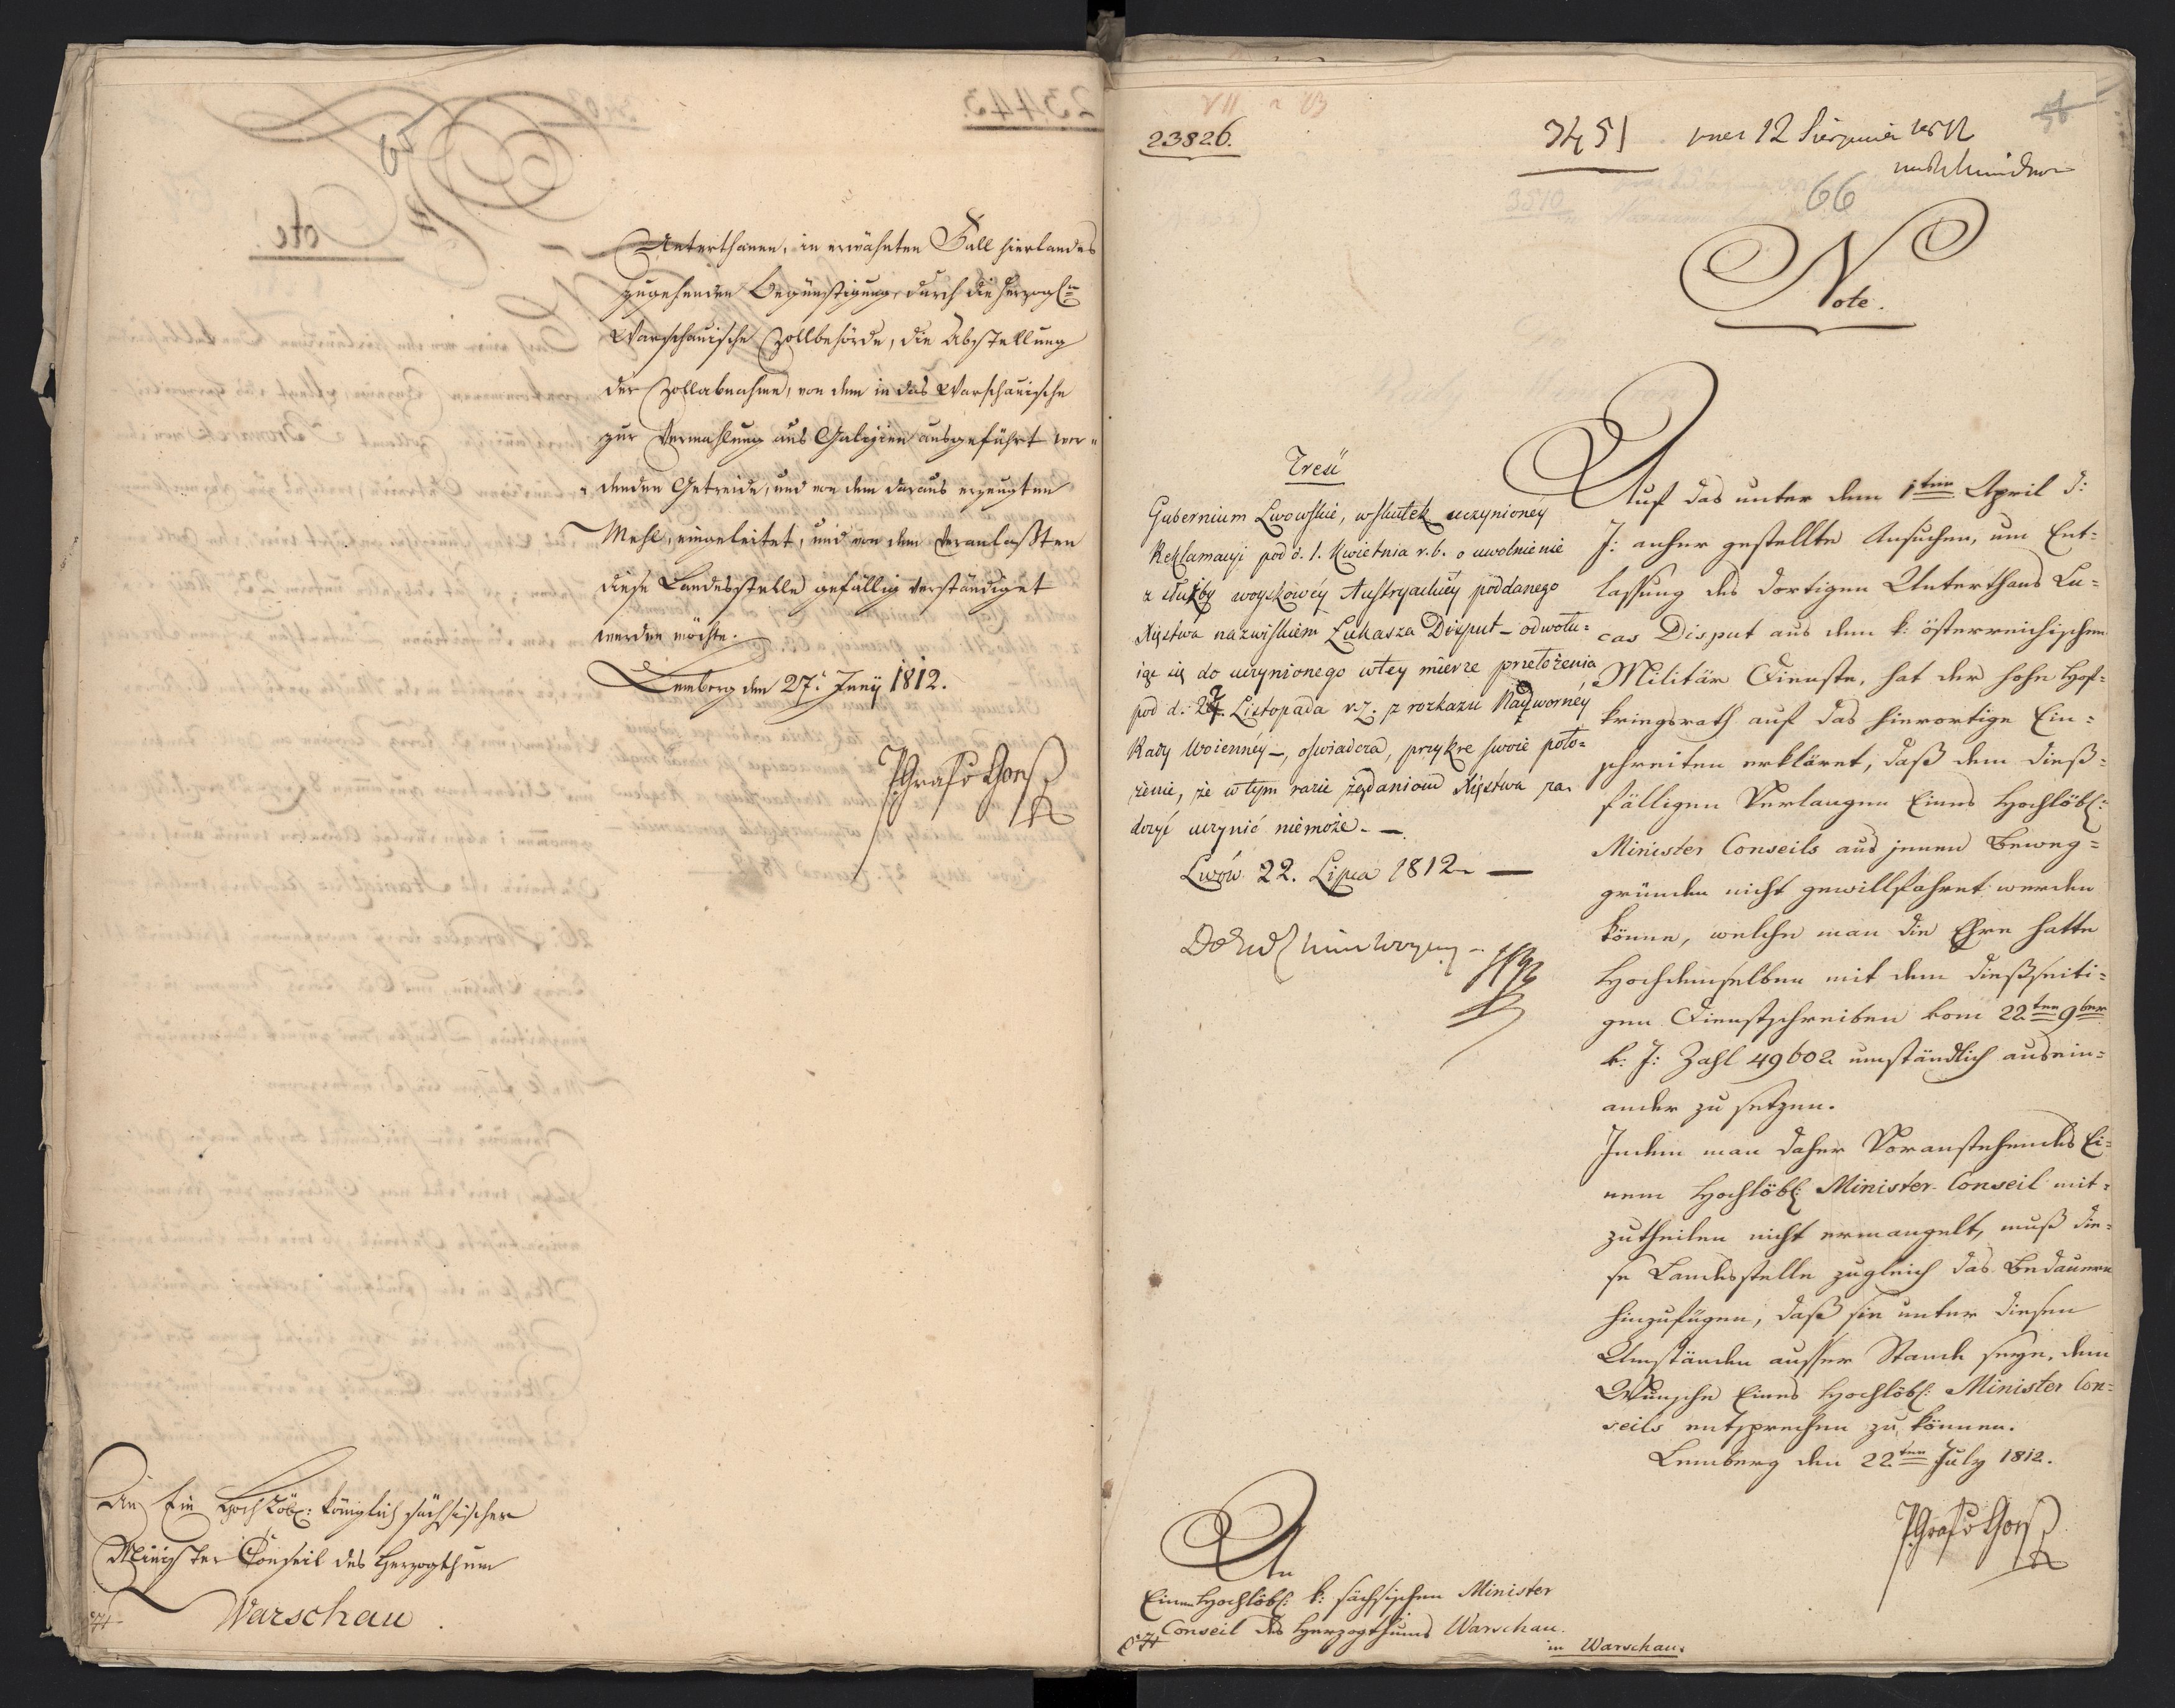 Unterthanen, in erwähnten Fall hierlandes
zugehenden Begünstigung, durch die herzogl:
Warschauische Zollbehörde, die Abstellung
der Zollabnahme, von dem in das Warschauische
zur Vermahlung aus Galizien ausgeführt wer„
„denden Getreide, und von dem daraus erzeugten
Mehl, eingeleitet, und von dem Veranlaßten
diese Landesstelle gefällig verständiget
werden möchte.
Lemberg den 27. Juny 1812.
An Ein Hochlöbl: königlich sächsischer
Minister Conseil des Herzogthum
Warschau.
23826.
3451 12 Sierpnia 1812
66
Note.
Treść
Gubernium Lwowskie, wskutek uczynioney
Reklamacyi pod d. 1. Kwietnia r.b. o uwolnienie
z służby woyskowéy Austryackiéy poddanego
Xięstwa nazwiskiem Łukasza Disput – odwołu=
iąc się do uczynionego wtey mierze przełożenia
pod d. 22. Listopada r.z. z rozkazu Nadwornéy
Rady Woienney –, oświadcza, przykre swoie poło=
żenie, że w tym razie żądaniom Xięstwa za=
dosyć uczynić niemoże. –
Lwów 22. Lipca 1812. –
Auf das unter dem 1ten April d:
J: anher gestellte Ansuchen, um Ent=
lassung des dortigen Unterthans Lu=
cas Disput aus dem k: österreichischen
Militär Dienste, hat der hohe Hof=
kriegsrath auf das hierortige Ein=
schreiten erkläret, daß dem dieß=
fälligen Verlangen Eines Hochlöbl:
Minister Conseils aus jenen Beweg=
gründen nicht gewillfahret werden
könne, welche man die Ehre hatte
Hochdemselben mit dem dießseiti=
gen Dienstschreiben vom 22ten 9ber
v: J: Zahl 49602 umständlich ausein=
ander zu setzen.
Indem man daher Voranstehendes Ei=
nem Hochlöbl: Minister Conseil mit=
zutheilen nicht ermangelt, muß die=
se Landesstelle zugleich das Bedauern
hinzufügen, daß sie unter diesen
Umständen ausser Stande seye, dem
Wunsche Eines Hochlöbl: Minister Con=
seils entsprechen zu können.
Lemberg den 22ten July 1812.
An
Einen Hochlöbl: k: sächsischen Minister
Conseil des Herzogthums Warschau.
in Warschau.